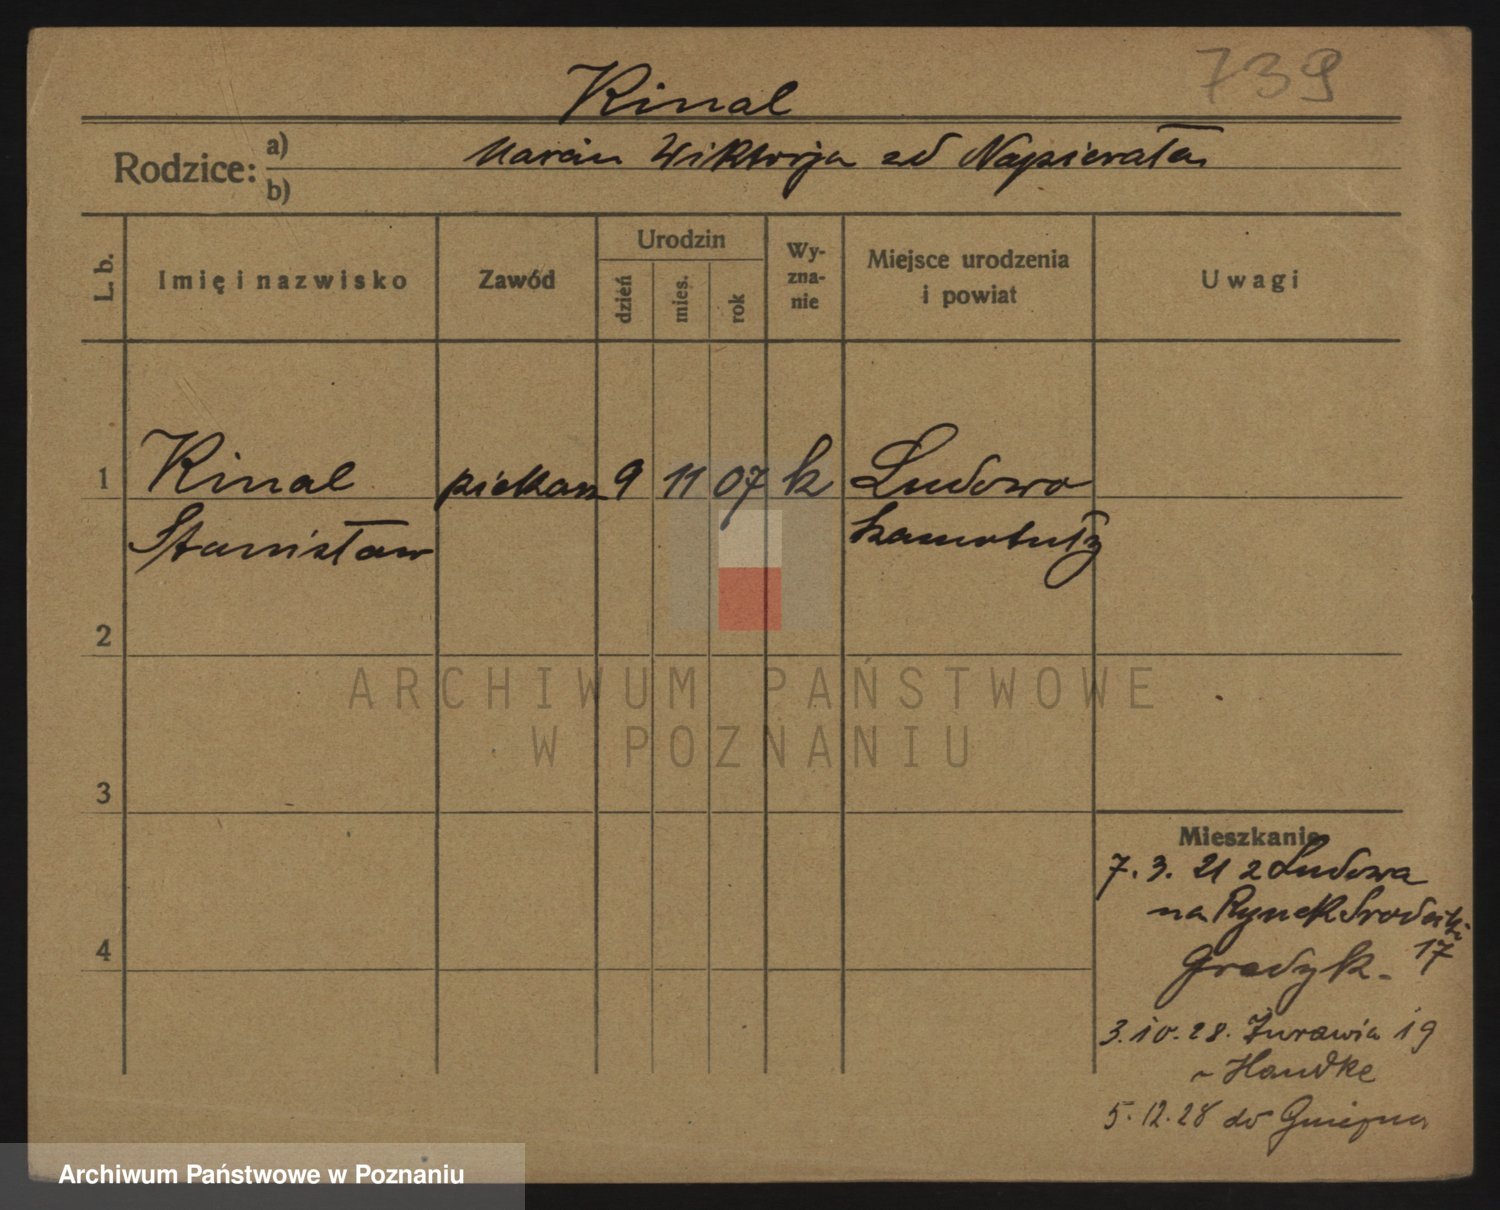 739
Kinal
Rodzice: a) Marcin Wiktorja zd Napierała
b)
L. b. Imię i nazwisko Zawód Urodzin dzień mies. rok Wy-zna-nie Miejsce urodzenia i powiat Uwagi
1 Kinal piekarz 9 11 07 k Ludowo
Stanisław Szamotuły
2
ARCHIWUM PAŃSTWOWE
W POZNANIU
3
Mieszkanie
7. 3. 21 z Ludowa
na Rynek Srodecki
17
4
Gradyk -
3. 10. 28. Żurawia 19
Handke
5. 12. 28 do Gniezna
Archiwum Państwowe w Poznaniu